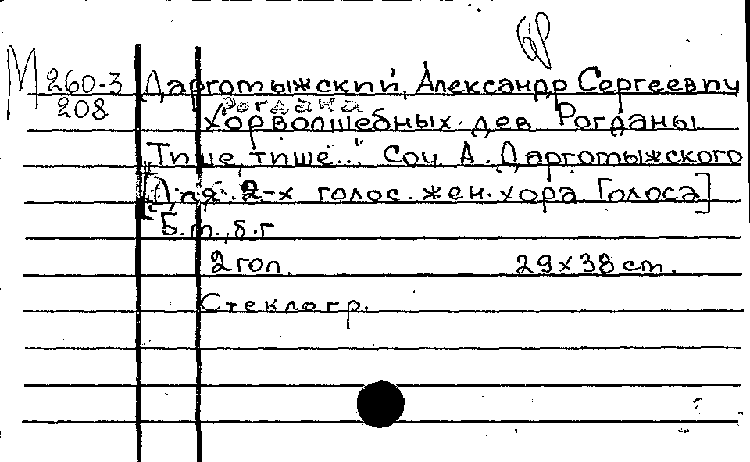 бр
М 260-3 Даргомыжский, Александр Сергеевич
208 Рогдана
Хор волшебных дев Рогданы
"Тише, тише..." Соч А. Даргомыжского
[Для 2-х голос. жен. хора Голоса]
Б.м., б.г
2 гол. 29х38 ст.
Стеклогр.